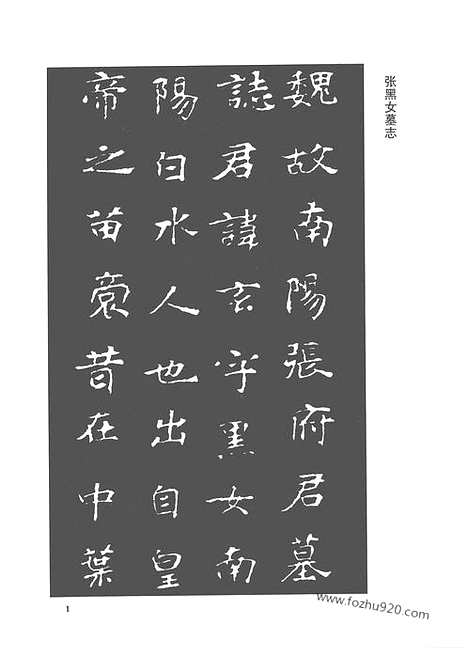 张黑女墓志
魏故南陽張府君墓
誌君諱玄字黑女南
陽白水人也出自皇
帝之苗裔昔在中葉
1
www.fozhu920.com